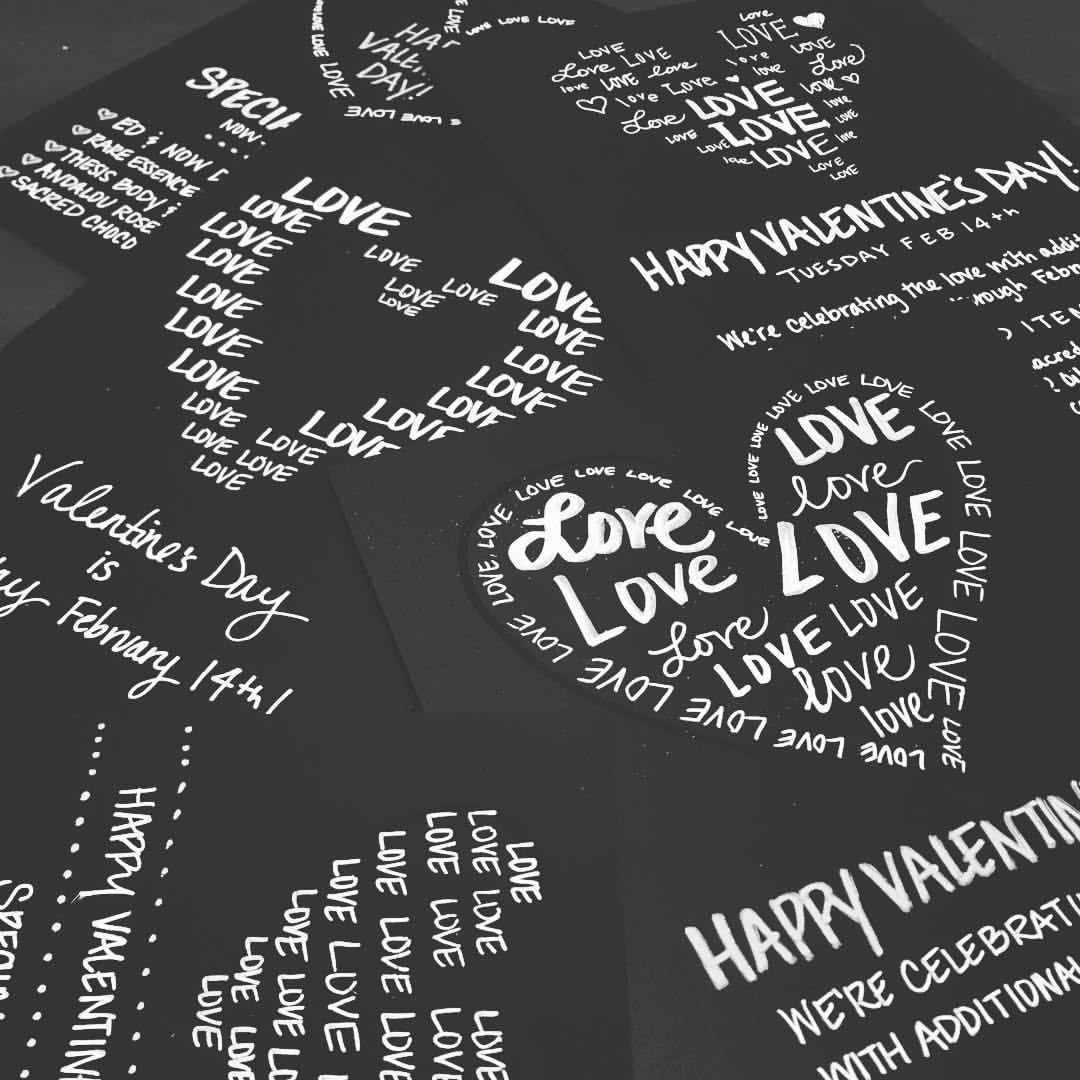 LOVE LOVE LOVE
HA
VALE
DAY!!
LOVE LOVE
SPECI
NOW
♡ ED & NOW
♡ RARE ESSENCE
♡ THESIS BODY &
♡ ANDALOU ROSE
♡ SACRED CHOCO
love
LOVE
LOVE LOVE LOVE love LOVE
Love LOVE love love Love
love LOVE love love love
Love LOVE love
LOVE LOVE love
LOVE LOVE love
love LOVE LOVE
LOVE
HAPPY VALENTINE'S DAY!
TUESDAY FEB 14th
We're celebrating the love with addit
rough Febru
ITEM
acred
LOVE
LOVE
LOVE LOVE
LOVE LOVE LOVE
LOVE LOVE LOVE
LOVE LOVE
LOVE LOVE
LOVE LOVE
LOVE LOVE LOVE LOVE
LOVE LOVE LOVE
LOVE LOVE
LOVE
Valentine's Day
is
ay February 14th!
LOVE LOVE LOVE LOVE LOVE LOVE LOVE LOVE
LOVE LOVE LOVE LOVE LOVE LOVE LOVE LOVE
LOVE LOVE LOVE LOVE LOVE LOVE
LOVE LOVE LOVE LOVE LOVE LOVE LOVE LOVE
LOVE
love
Love LOVE
Love
Love LOVE LOVE
love
love
HAPPY VALENTIN
SPECIA
LOVE
LOVE LOVE LOVE
LOVE LOVE LOVE
LOVE LOVE LOVE
LOVE LOVE LOVE
LOVE LOVE LOVE
LOVE LOVE
LOVE LOVE
HAPPY VALENTIN
WE'RE CELEBRATI
WITH ADDITIONAL